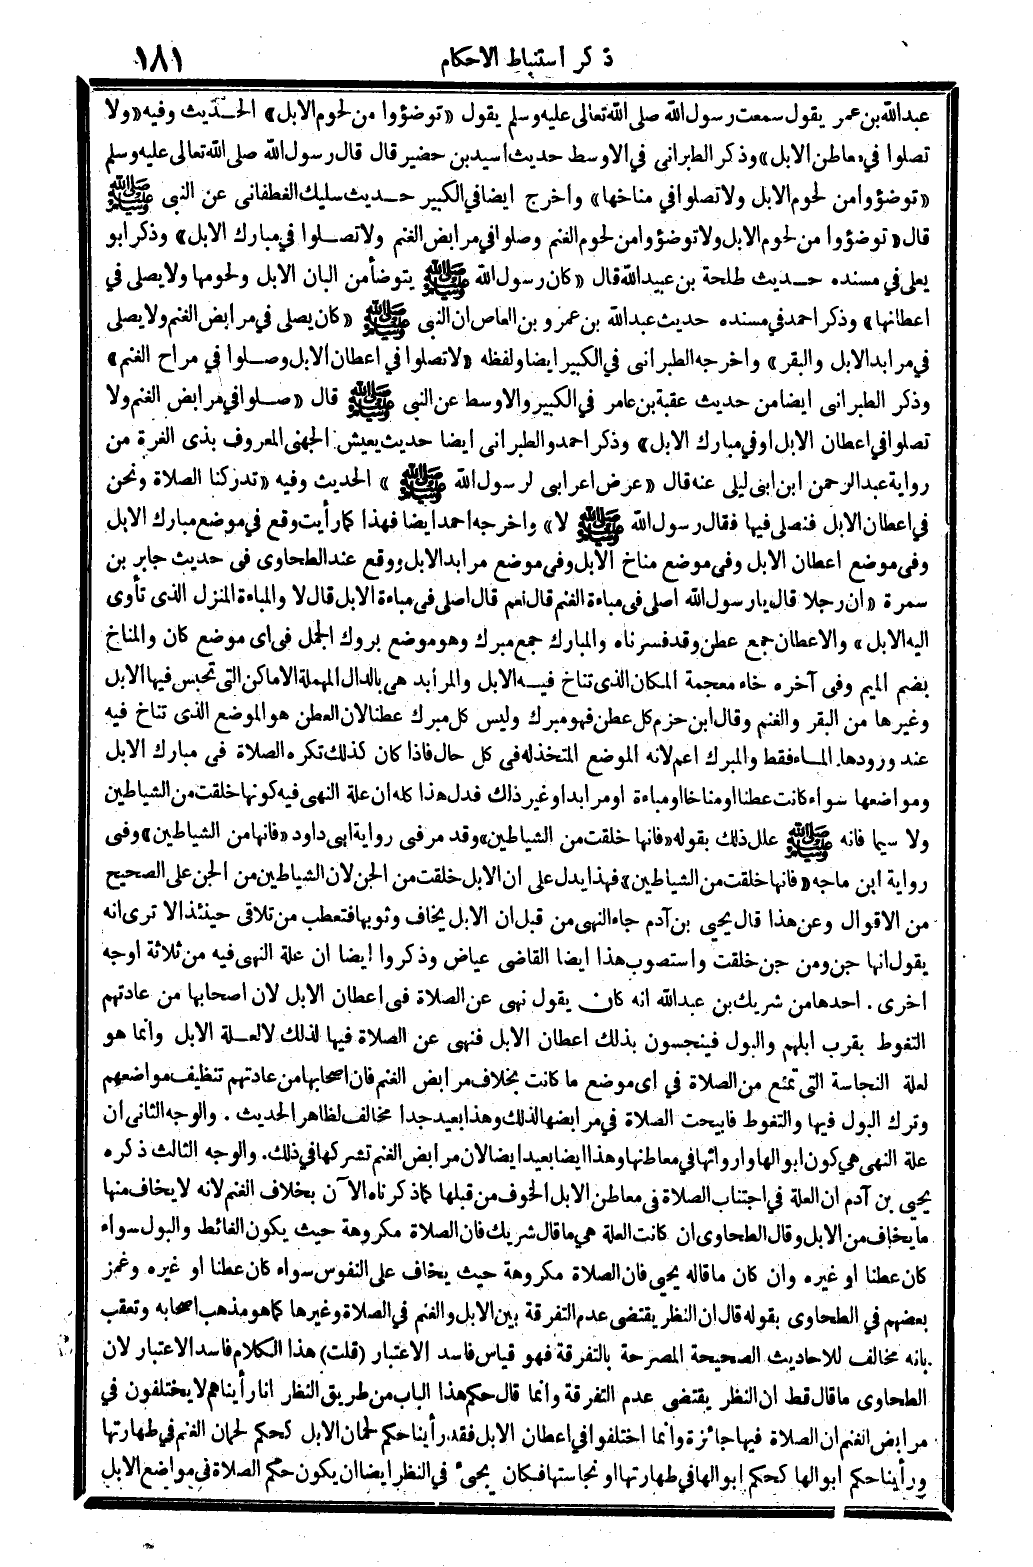 ذكر استنباط الاحكام ١٨١
عبدالله بن عمر يقول سمعت رسول الله صلى الله تعالى عليه وسلم يقول «توضؤوا من لحوم الابل» الحديث وفيه «ولا
تصلوا في معاطن الابل» وذكر الطبرانى في الاوسط حديث اسيد بن حضير قال قال رسول الله صلى الله تعالى عليه وسلم
«توضؤوا من لحوم الابل ولا تصلوا في مناخها» واخرج ايضا في الكبير حديث سليك الغطفانى عن النبى ﷺ
قال «توضؤوا من لحوم الابل ولا توضؤوا من لحوم الغنم وصلوا في مرابض الغنم ولا تصلوا في مبارك الابل» وذكر ابو
يعلى في مسنده حديث طلحة بن عبيد الله قال «كان رسول الله ﷺ يتوضأ من البان الابل ولحومها ولا يصلى في
اعطانها» وذكر احمد في مسنده حديث عبدالله بن عمرو بن العاص ان النبى ﷺ «كان يصلى في مرابض الغنم ولا يصلى
في مرابد الابل والبقر» واخرجه الطبرانى في الكبير ايضا ولفظه «لا تصلوا في اعطان الابل وصلوا في مراح الغنم»
وذكر الطبرانى ايضا من حديث عقبة بن عامر في الكبير والاوسط عن النبى ﷺ قال «صلوا في مرابض الغنم ولا
تصلوا في اعطان الابل او في مبارك الابل» وذكر احمد والطبرانى ايضا حديث يعيش الجهنى المعروف بذى الغرة من
رواية عبد الرحمن ابن ابى ليلى عنه قال «عرض اعرابى لرسول الله ﷺ» الحديث وفيه «تدركنا الصلاة ونحن
في اعطان الابل فنصلى فيها فقال رسول الله ﷺ لا» واخرجه احمد ايضا فهذا كما رأيت وقع في موضع مبارك الابل
وفى موضع اعطان الابل وفى موضع مناخ الابل وفى موضع مرابد الابل ووقع عند الطحاوى فى حديث جابر بن
سمرة «ان رجلا قال يارسول الله اصلى فى مباءة الغنم قال نعم قال اصلى فى مباءة الابل قال لا والمباءة المنزل الذى تأوى
اليه الابل» والاعطان جمع عطن وقد فسرناه والمبارك جمع مبرك وهو موضع بروك الجمل فى اى موضع كان والمناخ
بضم الميم وفى آخره خاء معجمة المكان الذى تناخ فيه الابل والمرابد هى بالدال المهملة الاماكن التى تحبس فيها الابل
وغيرها من البقر والغنم وقال ابن حزم كل عطن فهو مبرك وليس كل مبرك عطنا لان العطن هو الموضع الذى تناخ فيه
عند ورودها الماء فقط والمبرك اعم لانه الموضع المتخذ له فى كل حال فاذا كان كذلك تكره الصلاة فى مبارك الابل
ومواضعها سواء كانت عطنا او مناخا او مباءة او مرابد او غير ذاك فدل هذا كله ان علة النهى فيه كونها خلقت من الشياطين
ولا سيما فانه ﷺ علل ذلك بقوله «فانها خلقت من الشياطين» وقد مر فى رواية ابى داود «فانها من الشياطين» وفى
رواية ابن ماجه «فانها خلقت من الشياطين» فهذا يدل على ان الابل خلقت من الجن لان الشياطين من الجن على الصحيح
من الاقوال وعن هذا قال يحيى بن آدم جاء النهى من قبل ان الابل يخاف وثوبها فتعطب من تلاقى حينئذ الا ترى انه
يقول انها جن ومن جن خلقت واستصوب هذا ايضا القاضى عياض وذكروا ايضا ان علة النهى فيه من ثلاثة اوجه
اخرى . احدها من شريك بن عبدالله انه كان يقول نهى عن الصلاة فى اعطان الابل لان اصحابها من عادتهم
التغوط بقرب ابلهم والبول فينجسون بذلك اعطان الابل فنهى عن الصلاة فيها لذلك لا لعلة الابل وانما هو
لعلة النجاسة التى تمنع من الصلاة في اى موضع ما كانت بخلاف مرابض الغنم فان اصحابها من عادتهم تنظيف مواضعهم
وترك البول فيها والتغوط فابيحت الصلاة في مرابضها لذلك وهذا بعيد جدا مخالف لظاهر الحديث . والوجه الثانى ان
علة النهى هي كون ابوالها وارواثها في معاطنها وهذا ايضا بعيد ايضا لان مرابض الغنم تشركها في ذلك. والوجه الثالث ذكره
يحيى بن آدم ان العلة في اجتناب الصلاة فى معاطن الابل الخوف من قبلها كما ذكرناه الآن بخلاف الغنم لانه لا يخاف منها
ما يخاف من الابل وقال الطحاوى ان كانت العلة هي ما قال شريك فان الصلاة مكروهة حيث يكون الغائط والبول سواء
كان عطنا او غيره وان كان ما قاله يحيى فان الصلاة مكروهة حيث يخاف على النفوس سواء كان عطنا او غيره وغمز
بعضهم في الطحاوى بقوله قال ان النظر يقتضى عدم التفرقة بين الابل والغنم في الصلاة وغيرها كما هو مذهب اصحابه وتعقب
بانه مخالف للاحاديث الصحيحة المصرحة بالتفرقة فهو قياس فاسد الاعتبار (قلت) هذا الكلام فاسد الاعتبار لان
الطحاوى ما قال قط ان النظر يقتضى عدم التفرقة وانما قال حكم هذا الباب من طريق النظر انا رأيناهم لا يختلفون في
مرابض الغنم ان الصلاة فيها جائزة وانما اختلفوا في اعطان الابل فقد رأينا حكم لحمان الابل كحكم لحمان الغنم في طهارتها
ورأينا حكم ابوالها كحكم ابوالها في طهارتها او نجاستها فكان يجىء في النظر ايضا ان يكون حكم الصلاة فى مواضع الابل